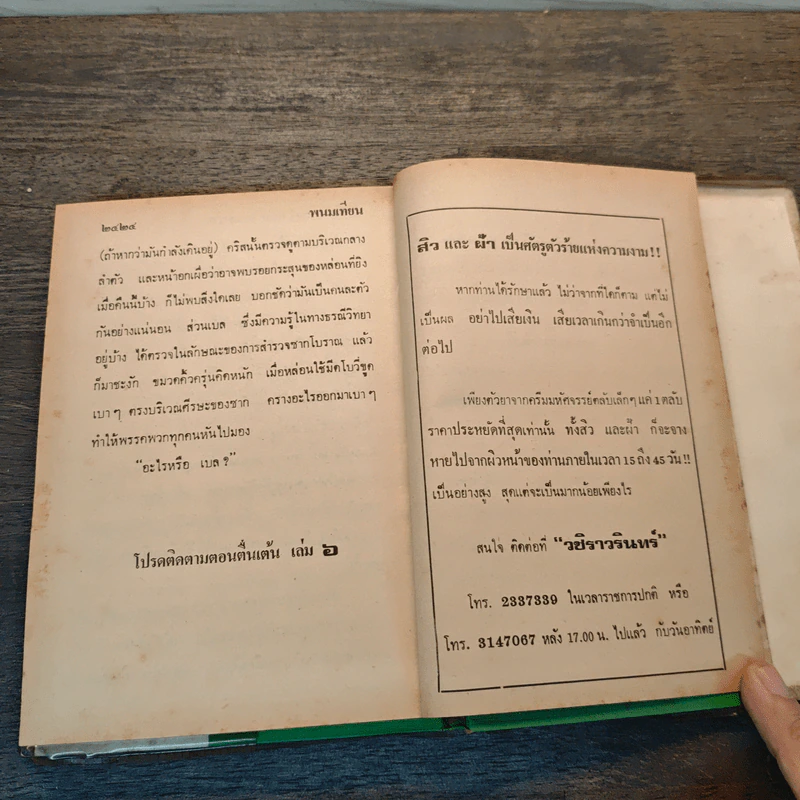 ๒๔๒๔
พนมเทียน
(ถ้าหากว่ามันกำลังเดินอยู่) คริสนั้นตรวจดูตามบริเวณกลาง
ลำตัว และหน้าอกเผื่อว่าอาจพบรอยกระสุนของหล่อนที่ยิง
เมื่อคืนนี้บ้าง ก็ไม่พบสิ่งใดเลย บอกชัดว่ามันเป็นคนละตัว
กันอย่างแน่นอน ส่วนเบล ซึ่งมีความรู้ในทางธรณีวิทยา
อยู่บ้าง ได้ตรวจในลักษณะของการสำรวจซากโบราณ แล้ว
ก็มาชะงัก ขมวดคิ้วครุ่นคิดหนัก เมื่อหล่อนใช้มีดโบวี่ขูด
เบาๆ ตรงบริเวณศีรษะของซาก ครางอะไรออกมาเบาๆ
ทำให้พรรคพวกทุกคนหันไปมอง
"อะไรหรือ เบล?"
โปรดติดตามตอนตื่นเต้น เล่ม ๖
สิว และ ฝ้า เป็นศัตรูตัวร้ายแห่งความงาม!!
หากท่านได้รักษาแล้ว ไม่ว่าจากที่ใดก็ตาม แต่ไม่
เป็นผล อย่าไปเสียเงิน เสียเวลาเกินกว่าจำเป็นอีก
ต่อไป
เพียงตัวยาจากครีมมหัศจรรย์ตลับเล็กๆ แค่ 1 ตลับ
ราคาประหยัดที่สุดเท่านั้น ทั้งสิว และฝ้า ก็จะจาง
หายไปจากผิวหน้าของท่านภายในเวลา 15 ถึง 45 วัน!!
เป็นอย่างสูง สุดแต่จะเป็นมากน้อยเพียงไร
สนใจ ติดต่อที่ "วชิราวรินทร์"
โทร. 2337339 ในเวลาราชการปกติ หรือ
โทร. 3147067 หลัง 17.00 น. ไปแล้ว กับวันอาทิตย์